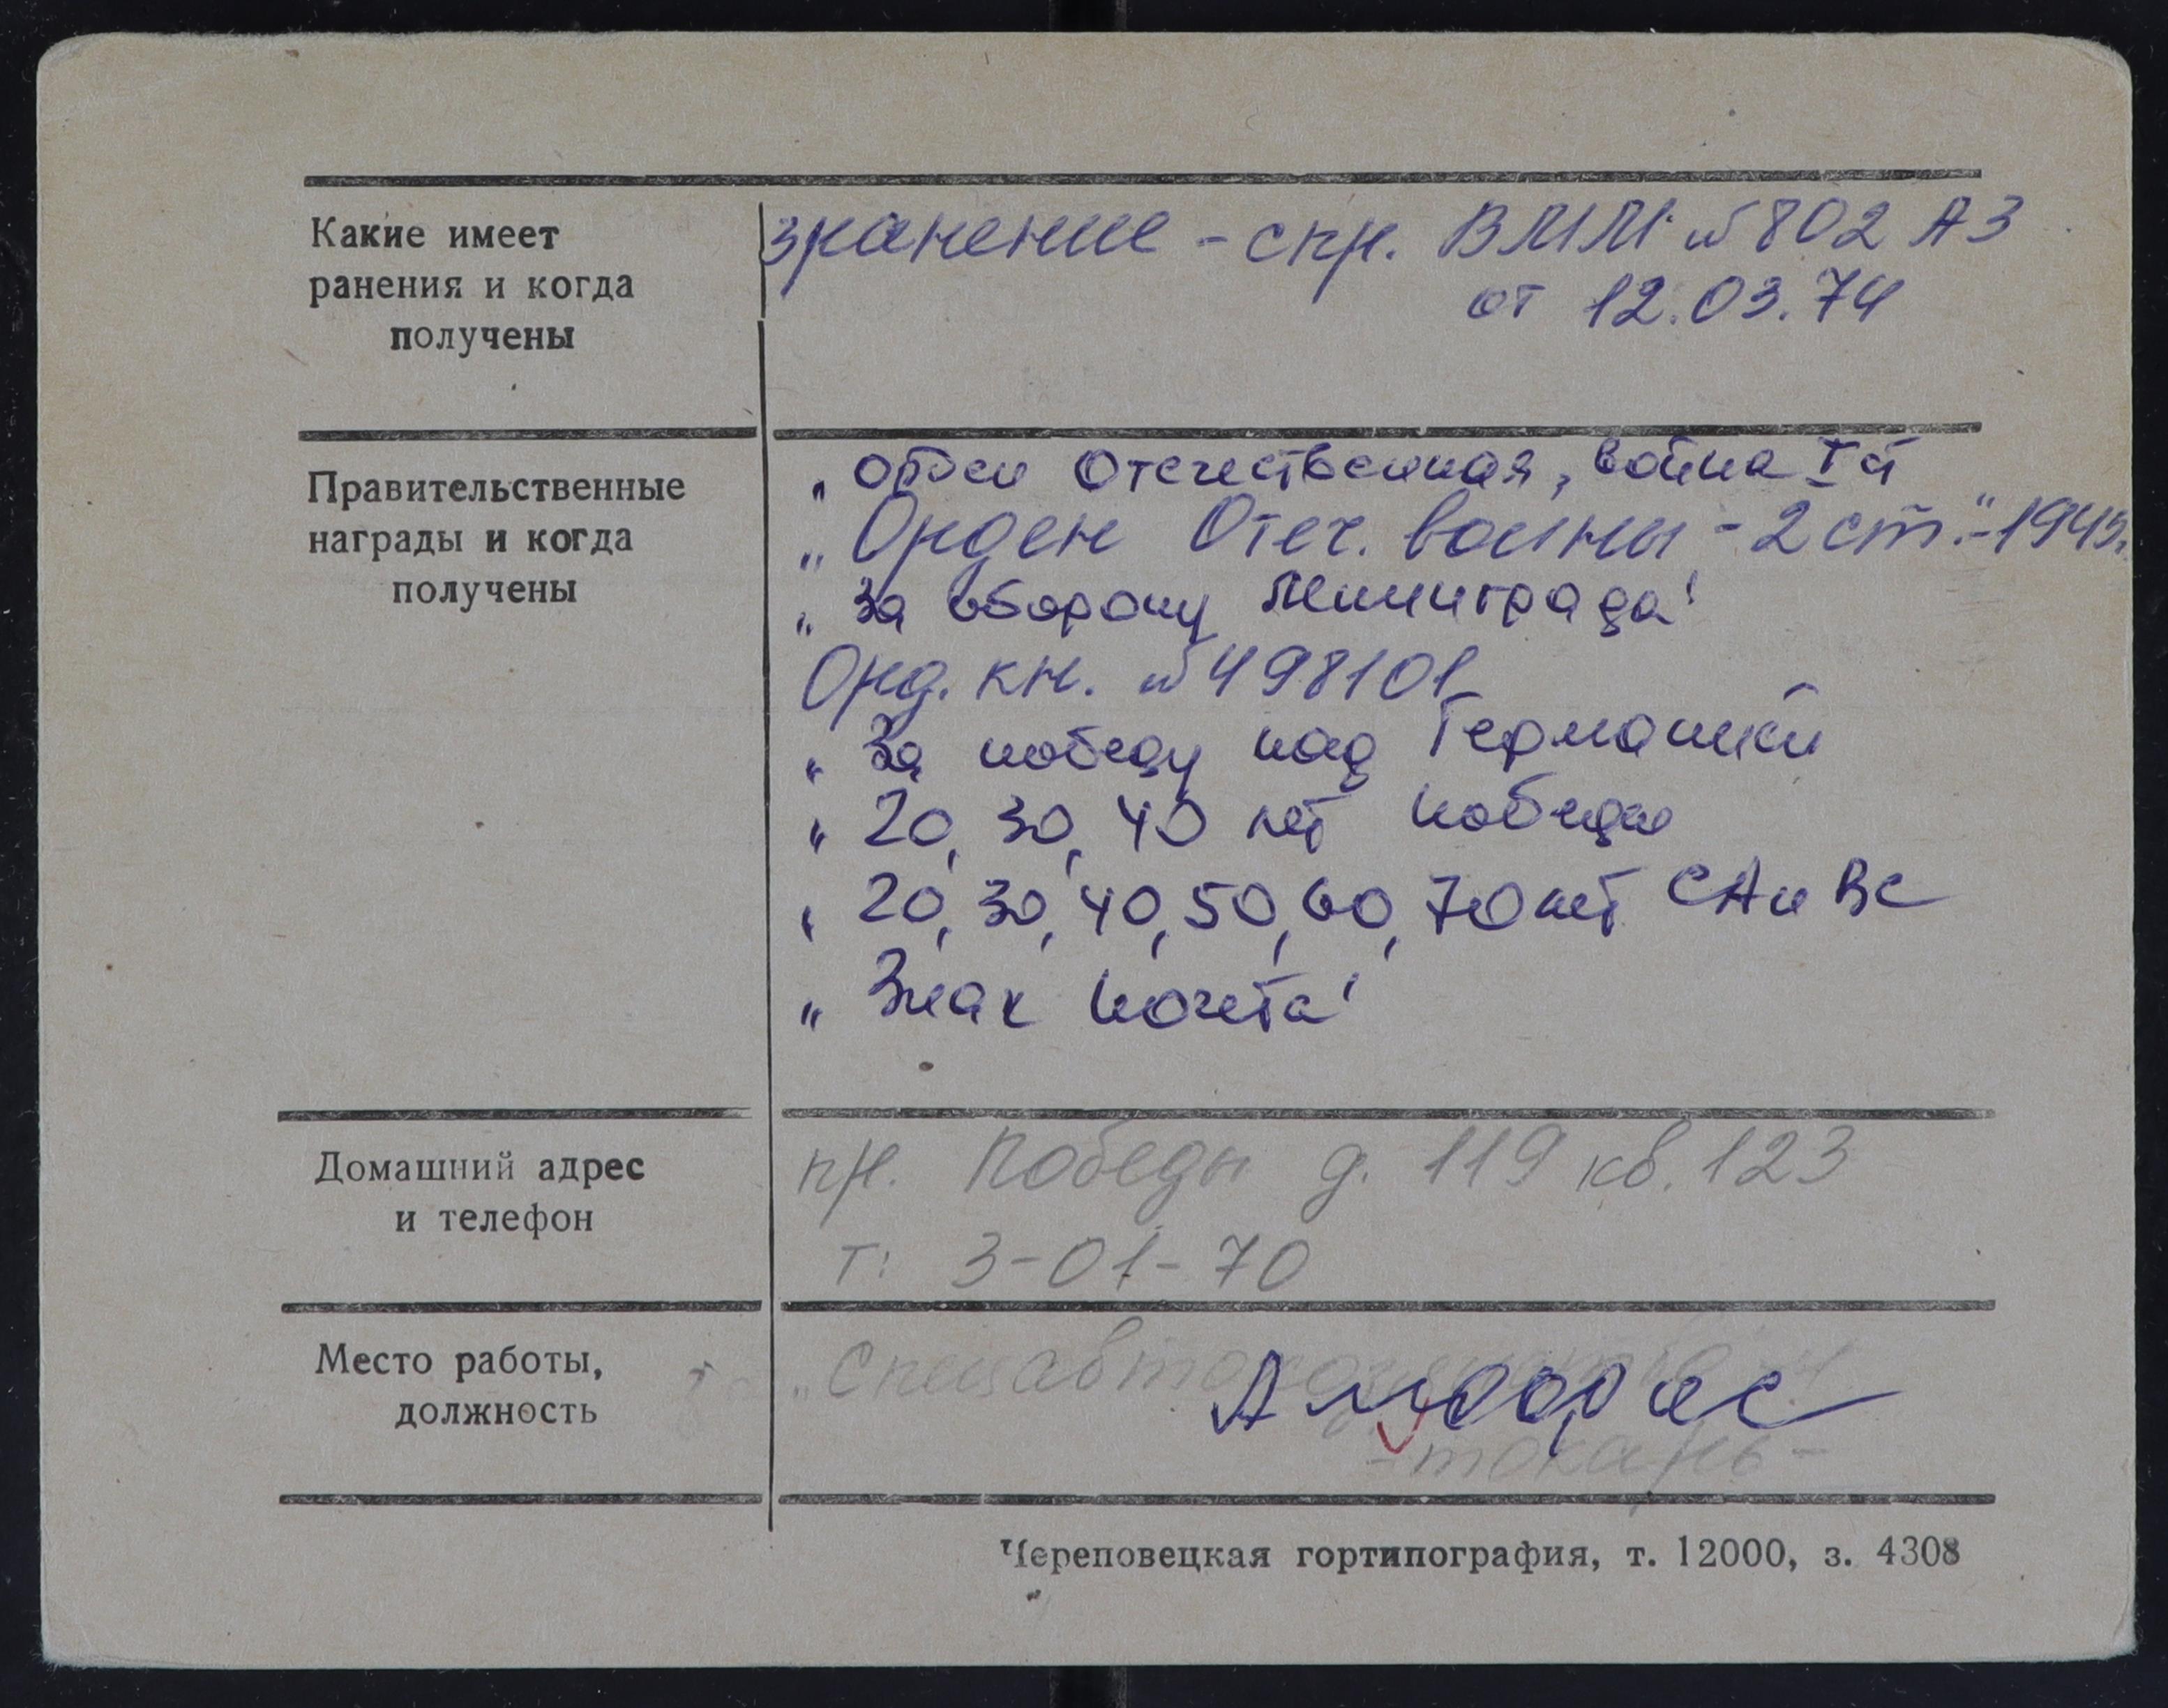 Какие имеет
ранения и когда
получены
3 ранение - спр. ВММ №802 АЗ
от 12.03.74
Правительственные
награды и когда
получены
„ Орден Отечественная, война I ст
„Орден Отеч. войны - 2 ст."- 1945.
„ За оборону Ленинграда"
Орд. кн. №498101
„ За победу над Германией
„ 20, 30, 40 лет Победы
„ 20, 30, 40, 50, 60, 70 лет СА и ВС
„ Знак Почета"
Домашний адрес
и телефон
пр. Победы д. 119 кв. 123
т: 3-01-70
Место работы,
должность
-токарь-
Череповецкая гортипография, т. 12000, з. 4308